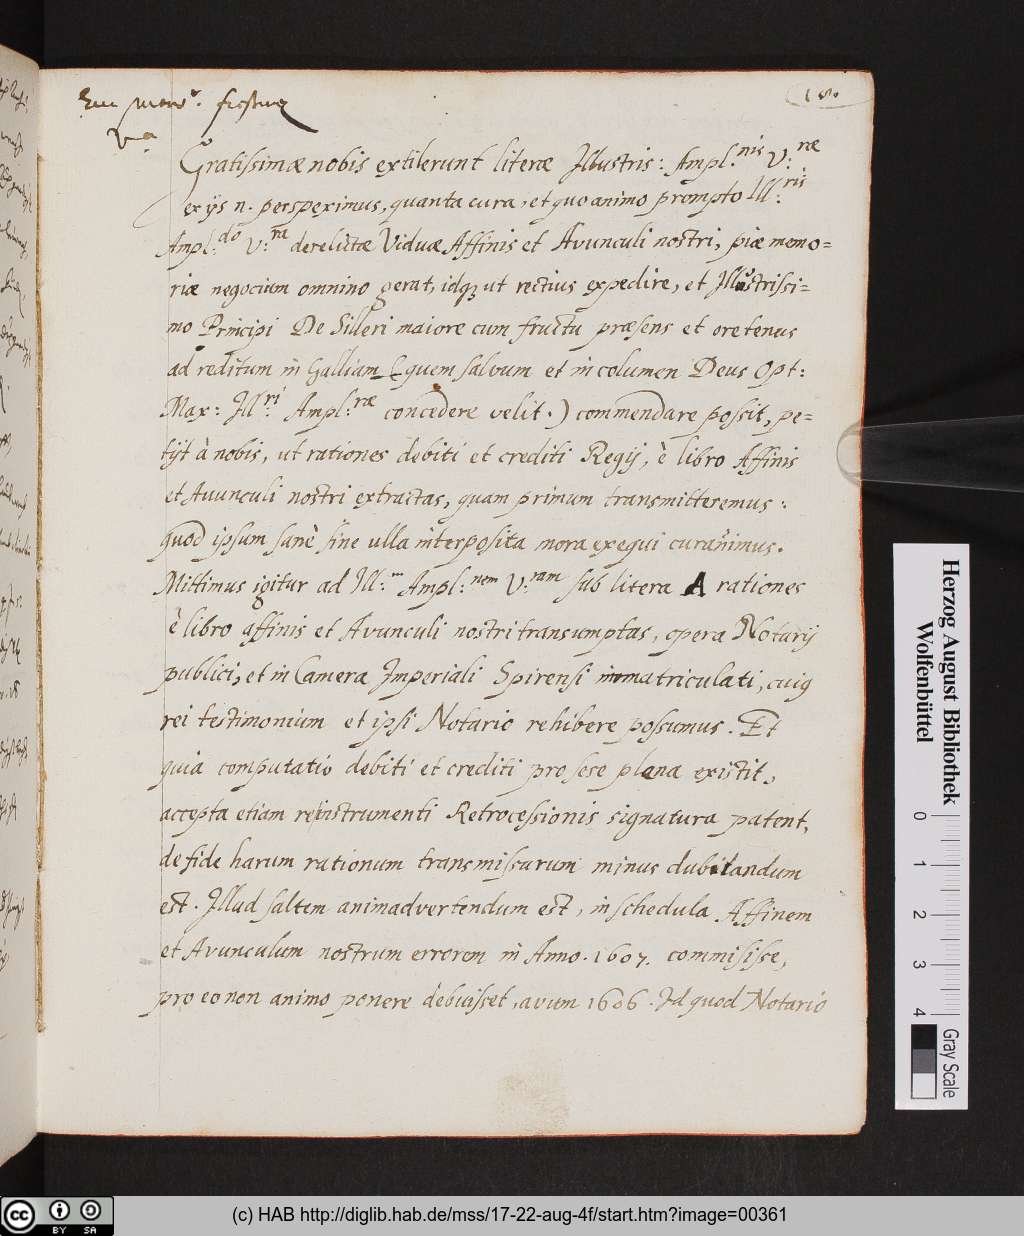 180
Gratissimæ nobis extilerunt literæ Illustris: Ampl:nis V:ræ
ex ijs n. perspeximus, quanta cura, et quo animo prompto Ill:ris
Ampl:do V:ra derelictæ Viduæ Affinis et Avunculi nostri, piæ memo=
riæ negocium omnino gerat, idqꝫ ut rectius expedire, et Illustrissi=
mo Principi De Silleri maiore cum fructu præsens et oretenus
ad reditum in Galliam (quem salvum et incolumen Deus Opt:
Max: Ill:ri Ampl:ræ concedere velit.) commendare possit, pe=
tijt à nobis, ut rationes debiti et crediti Regij, è libro Affinis
et Avunculi nostri extractas, quam primum transmitteremus:
quod ipsum sanè sine ulla interposita mora exequi curavimus.
Mittimus igitur ad Ill:m Ampl:nem V:ram sub litera A rationes
è libro affinis et Avunculi nostri transumptas, opera Notarij
publici, et in Camera Imperiali Spirensi immatriculati, cuiꝗ
rei testimonium et ipsi Notario rehibere possumus. Et
quia computatio debiti et crediti pro sese plena existit,
accepta etiam instrumenti Retrocessionis signatura patent,
de fide harum rationum transmissarum minus dubitandum
est. Illud saltem animadvertendum est, in schedula Affinem
et Avunculum nostrum errorem in Anno. 1607. commisisse,
pro eo non animo ponere debuisset, avum 1606. Id quod Notario
Herzog August Bibliothek
Wolfenbüttel
0 1 2 3 4
Gray Scale
CC BY SA
(c) HAB http://diglib.hab.de/mss/17-22-aug-4f/start.htm?image=00361